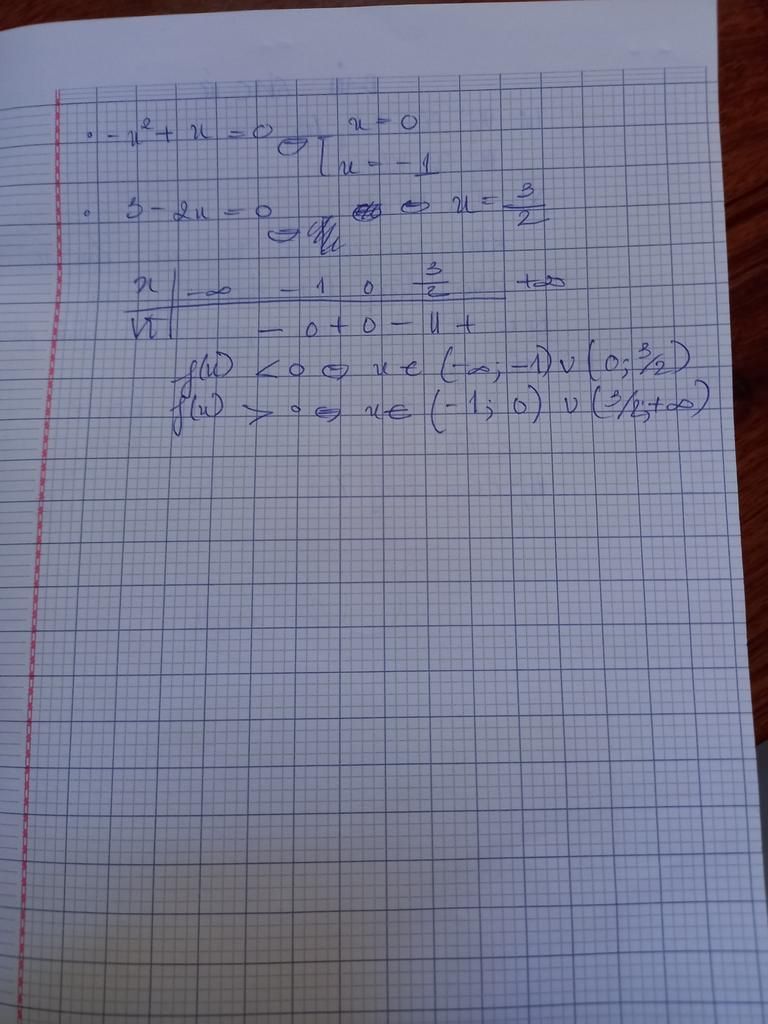 • -x² + x = 0 ⇔ [ x = 0
x = -1
• 3 - 2x = 0 ⇔ ⇔ x = 3/2
x | -∞ -1 0 3/2 +∞
VT | - 0 + 0 - || +
f(x) < 0 ⇔ x ∈ (-∞; -1) ∪ (0; 3/2)
f(x) > 0 ⇔ x ∈ (-1; 0) ∪ (3/2; +∞)